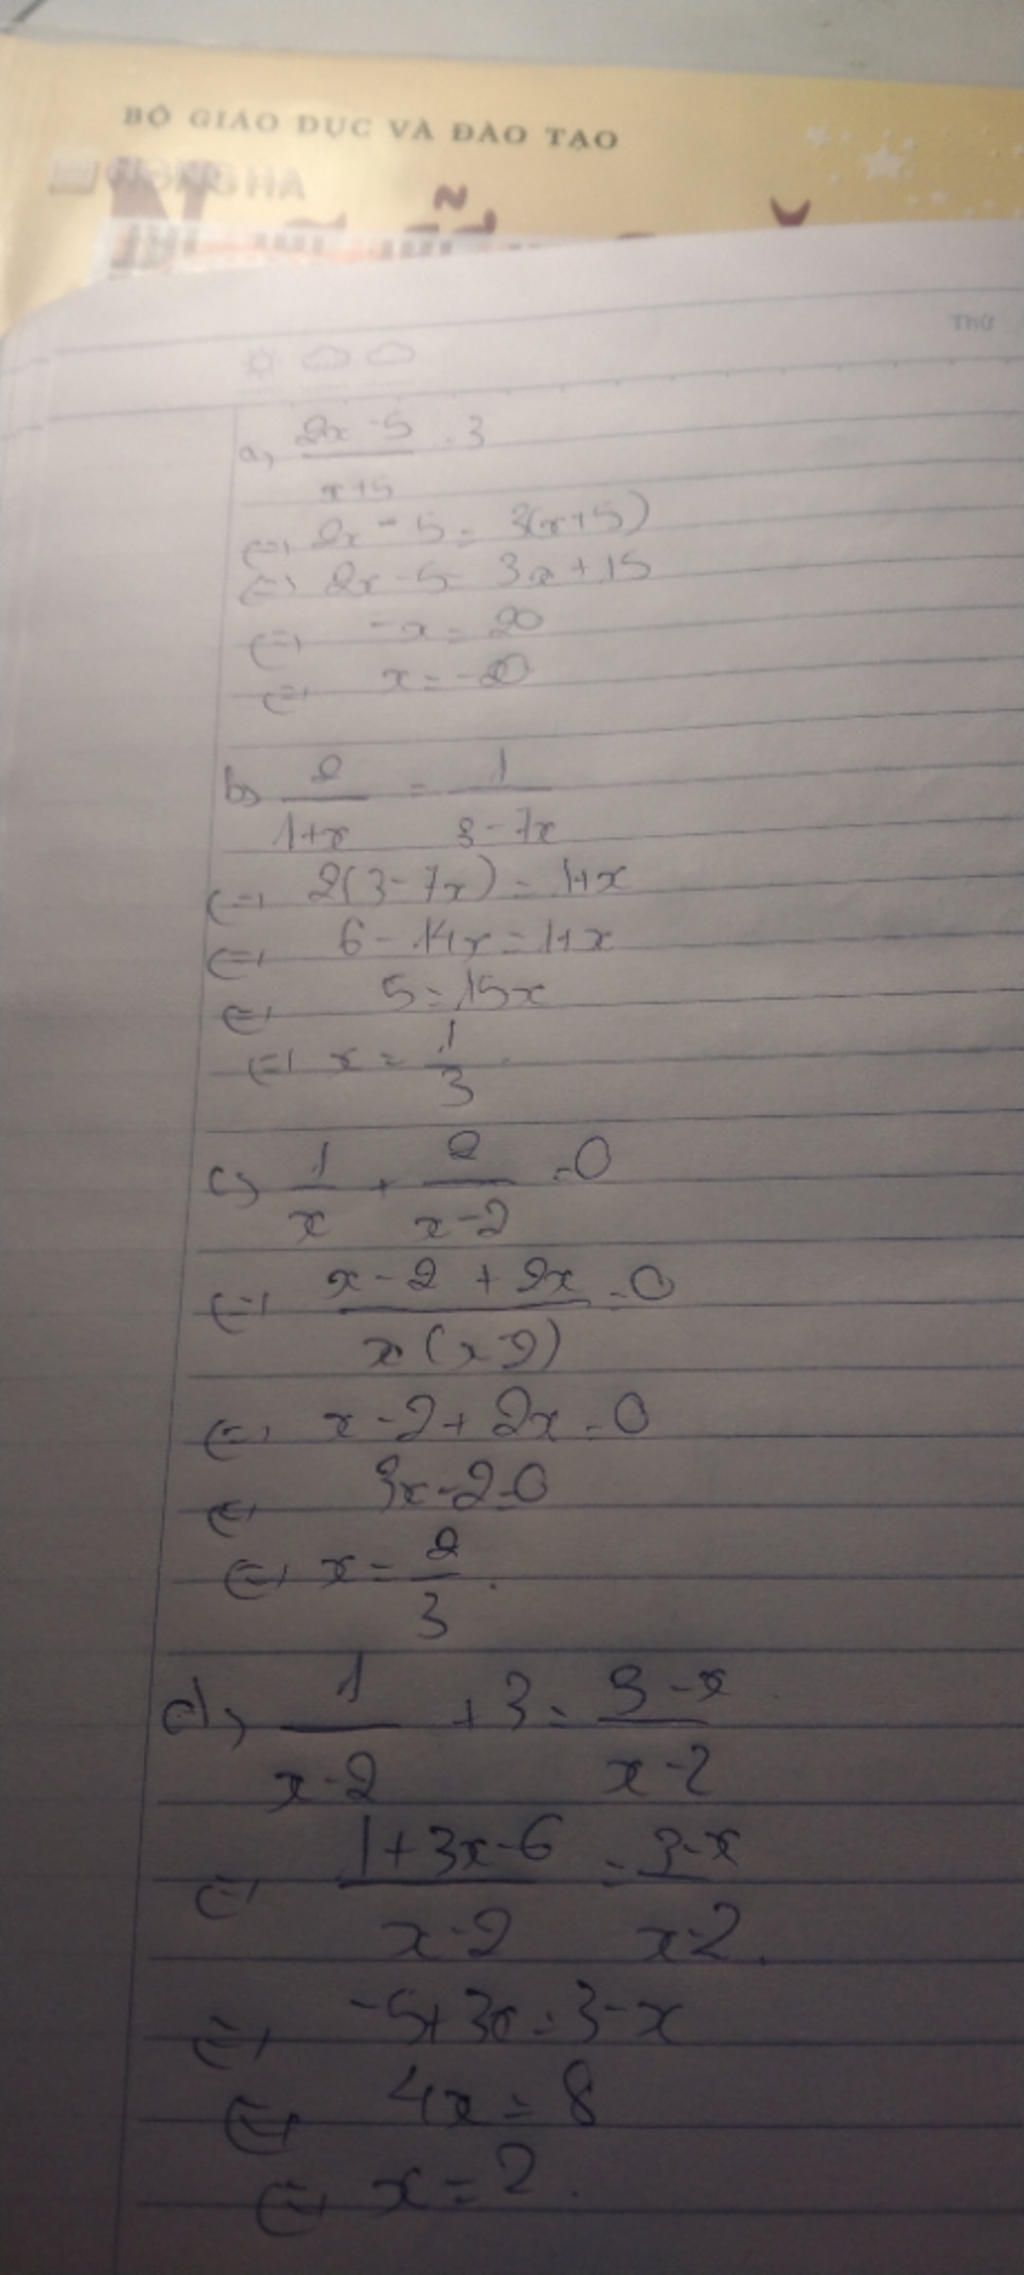 BỘ GIÁO DỤC VÀ ĐÀO TẠO
HONG HA
Thứ
a, (2x - 5)/(x+5) = 3
<=> 2x - 5 = 3(x+5)
<=> 2x - 5 = 3x + 15
<=> -x = 20
<=> x = -20
b, 2/(1+x) = 1/(3-7x)
<=> 2(3-7x) = 1+x
<=> 6 - 14x = 1+x
<=> 5 = 15x
<=> x = 1/3.
c, 1/x + 2/(x-2) = 0
<=> (x-2 + 2x)/(x(x-2)) = 0
<=> x-2 + 2x = 0
<=> 3x-2=0
<=> x = 2/3.
d, 1/(x-2) + 3 = (3-x)/(x-2)
<=> (1+3x-6)/(x-2) = (3-x)/(x-2).
<=> -5+3x = 3-x
<=> 4x = 8
<=> x = 2.